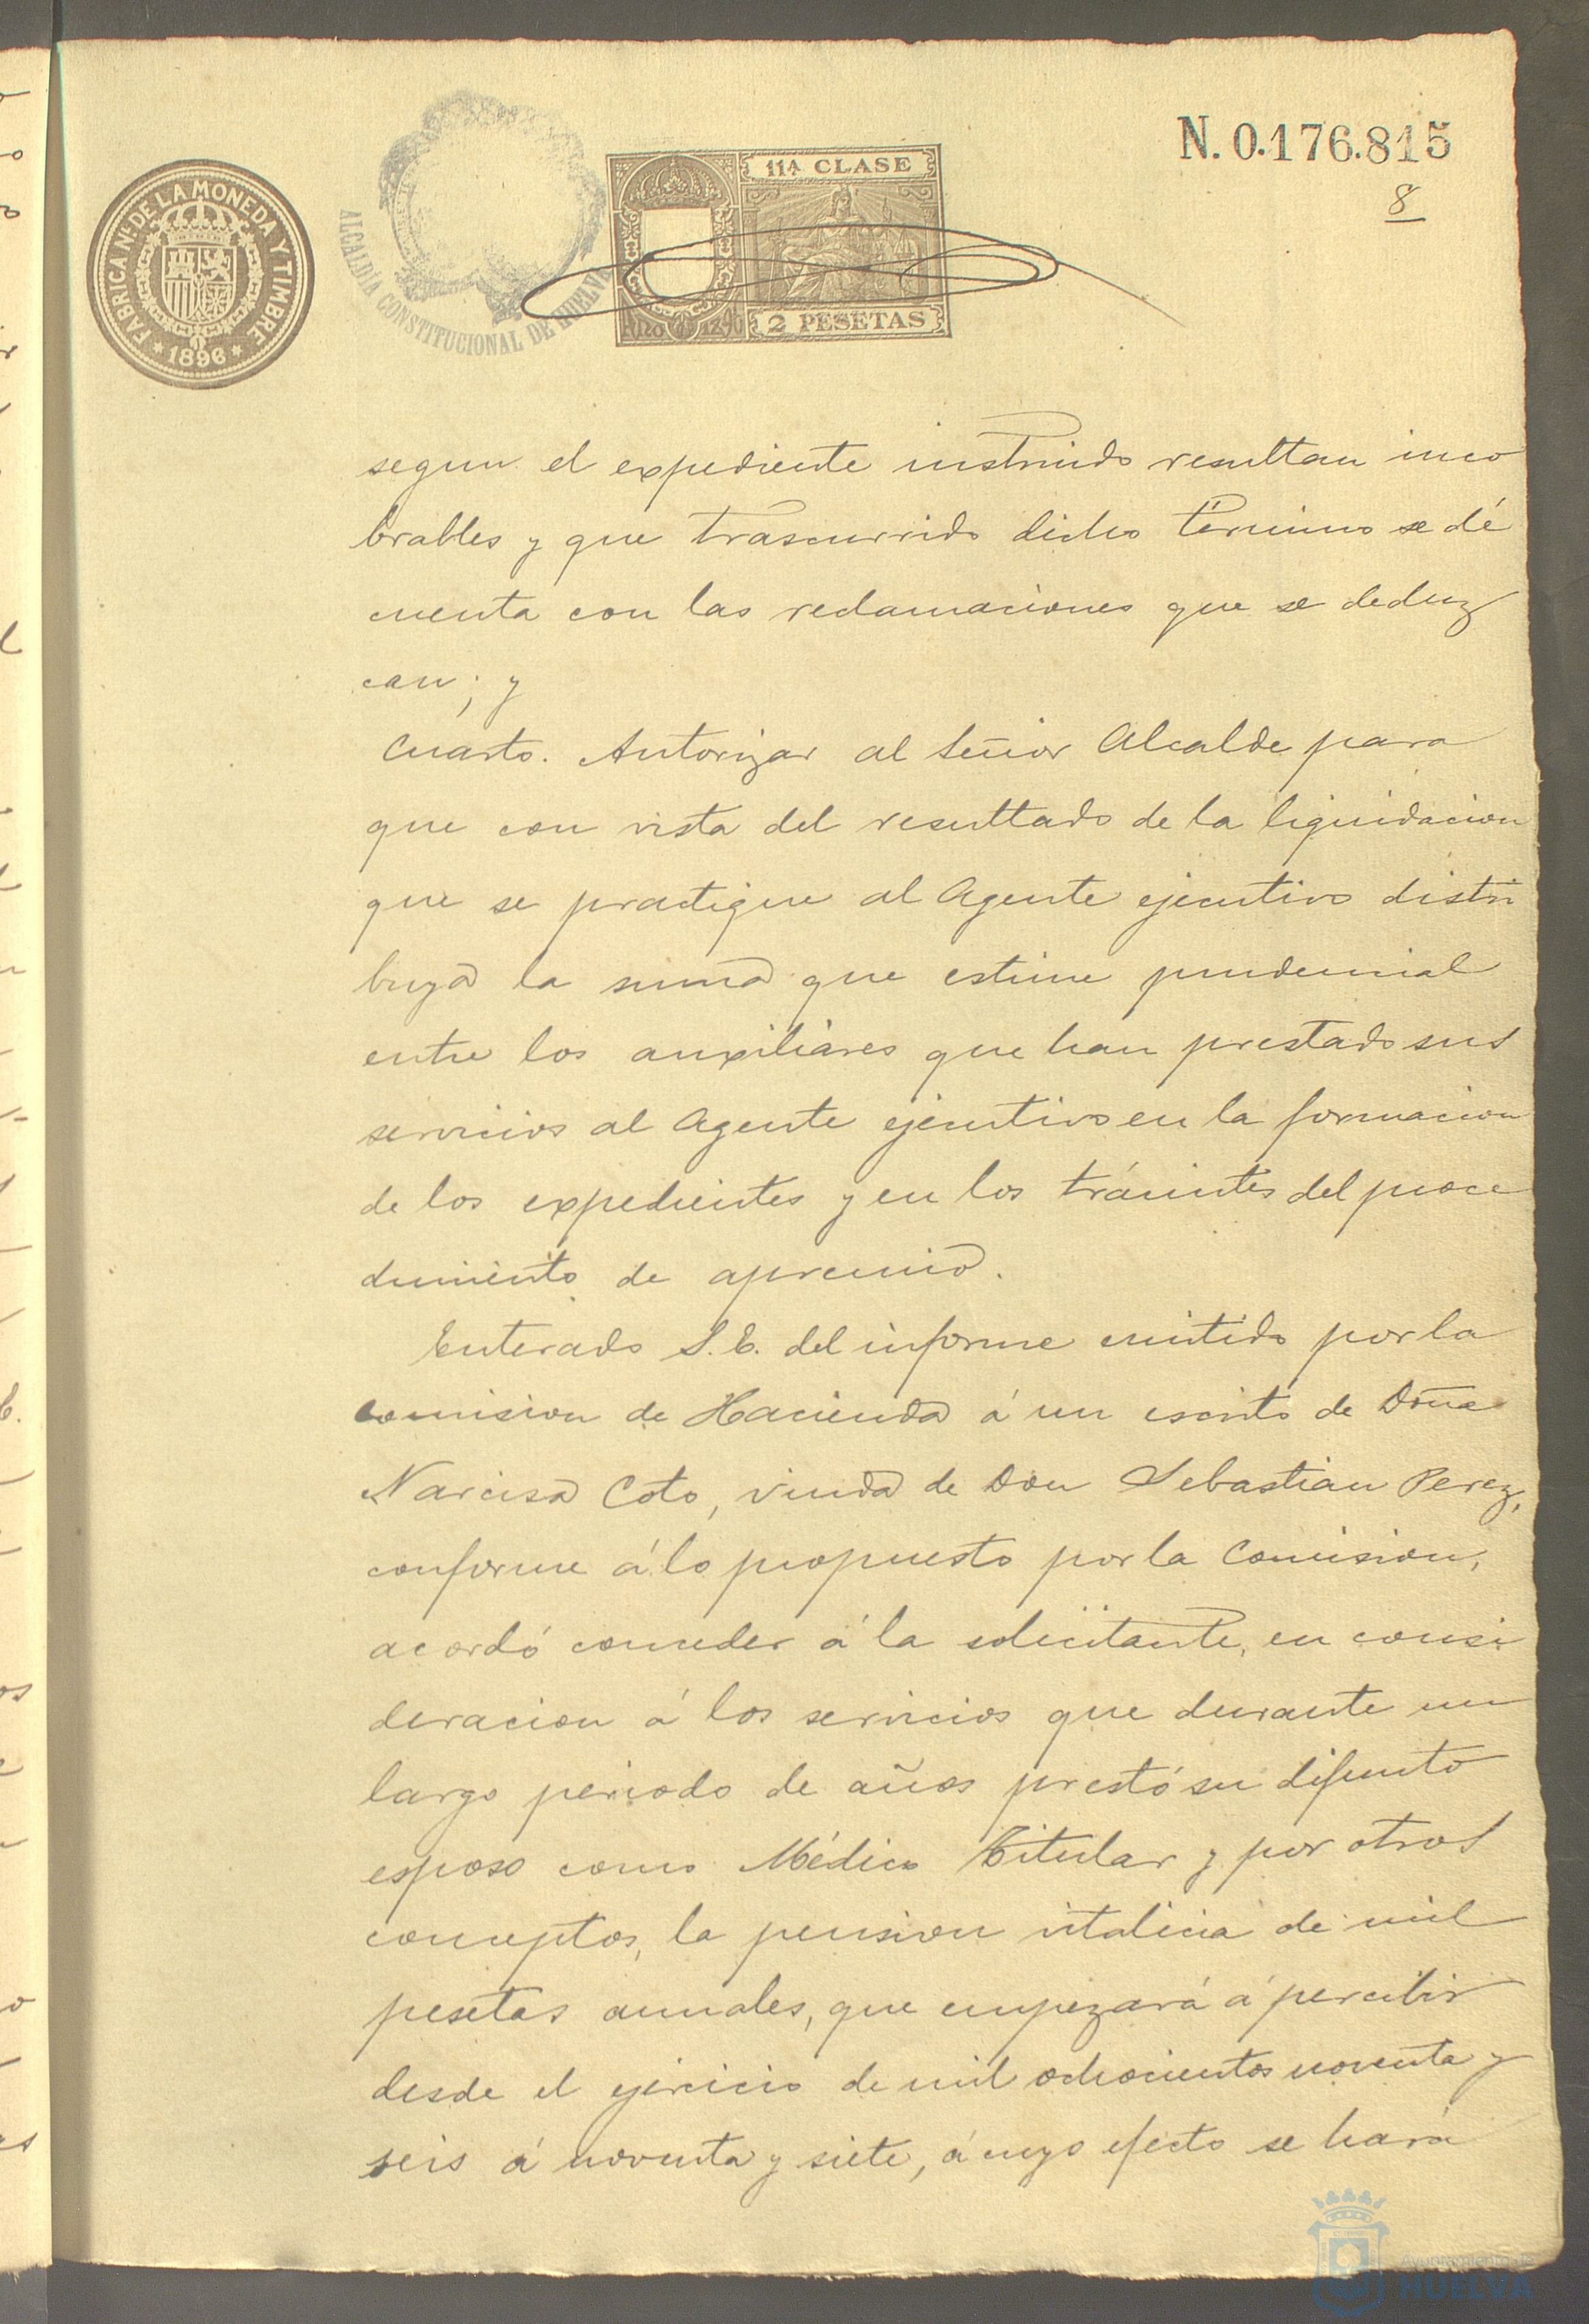 N. 0.176.815
8
FABRICA NL. DE LA MONEDA Y TIMBRE
* 1896 *
ALCALDÍA CONSTITUCIONAL DE HUELVA
11A CLASE
Año de 1896
2 PESETAS
segun el expediente instruido resultan inco
brables y que trascurrido dicho término se dé
cuenta con las reclamaciones que se deduz
can; y
Cuarto. Autorizar al Señor Alcalde para
que con vista del resultado de la liquidacion
que se practique al Agente ejecutivo distri
buya la suma que estime prudencial
entre los auxiliares que han prestado sus
servicios al Agente ejecutivo en la formacion
de los expedientes y en los trámites del proce
dimiento de apremio.
Enterado S.E. del informe emitido por la
comision de Hacienda á un escrito de Doña
Narcisa Coto, viuda de Don Sebastian Perez,
conforme á lo propuesto por la Comision,
acordó conceder á la solicitante, en consi
deracion á los servicios que durante un
largo periodo de años prestó su difunto
esposo como Médico Titular y por otros
conceptos, la pension vitalicia de mil
pesetas anuales, que empezará á percibir
desde el ejercicio de mil ochocientos noventa y
seis á noventa y siete, á cuyo efecto se hará
Ayuntamiento de
HUELVA